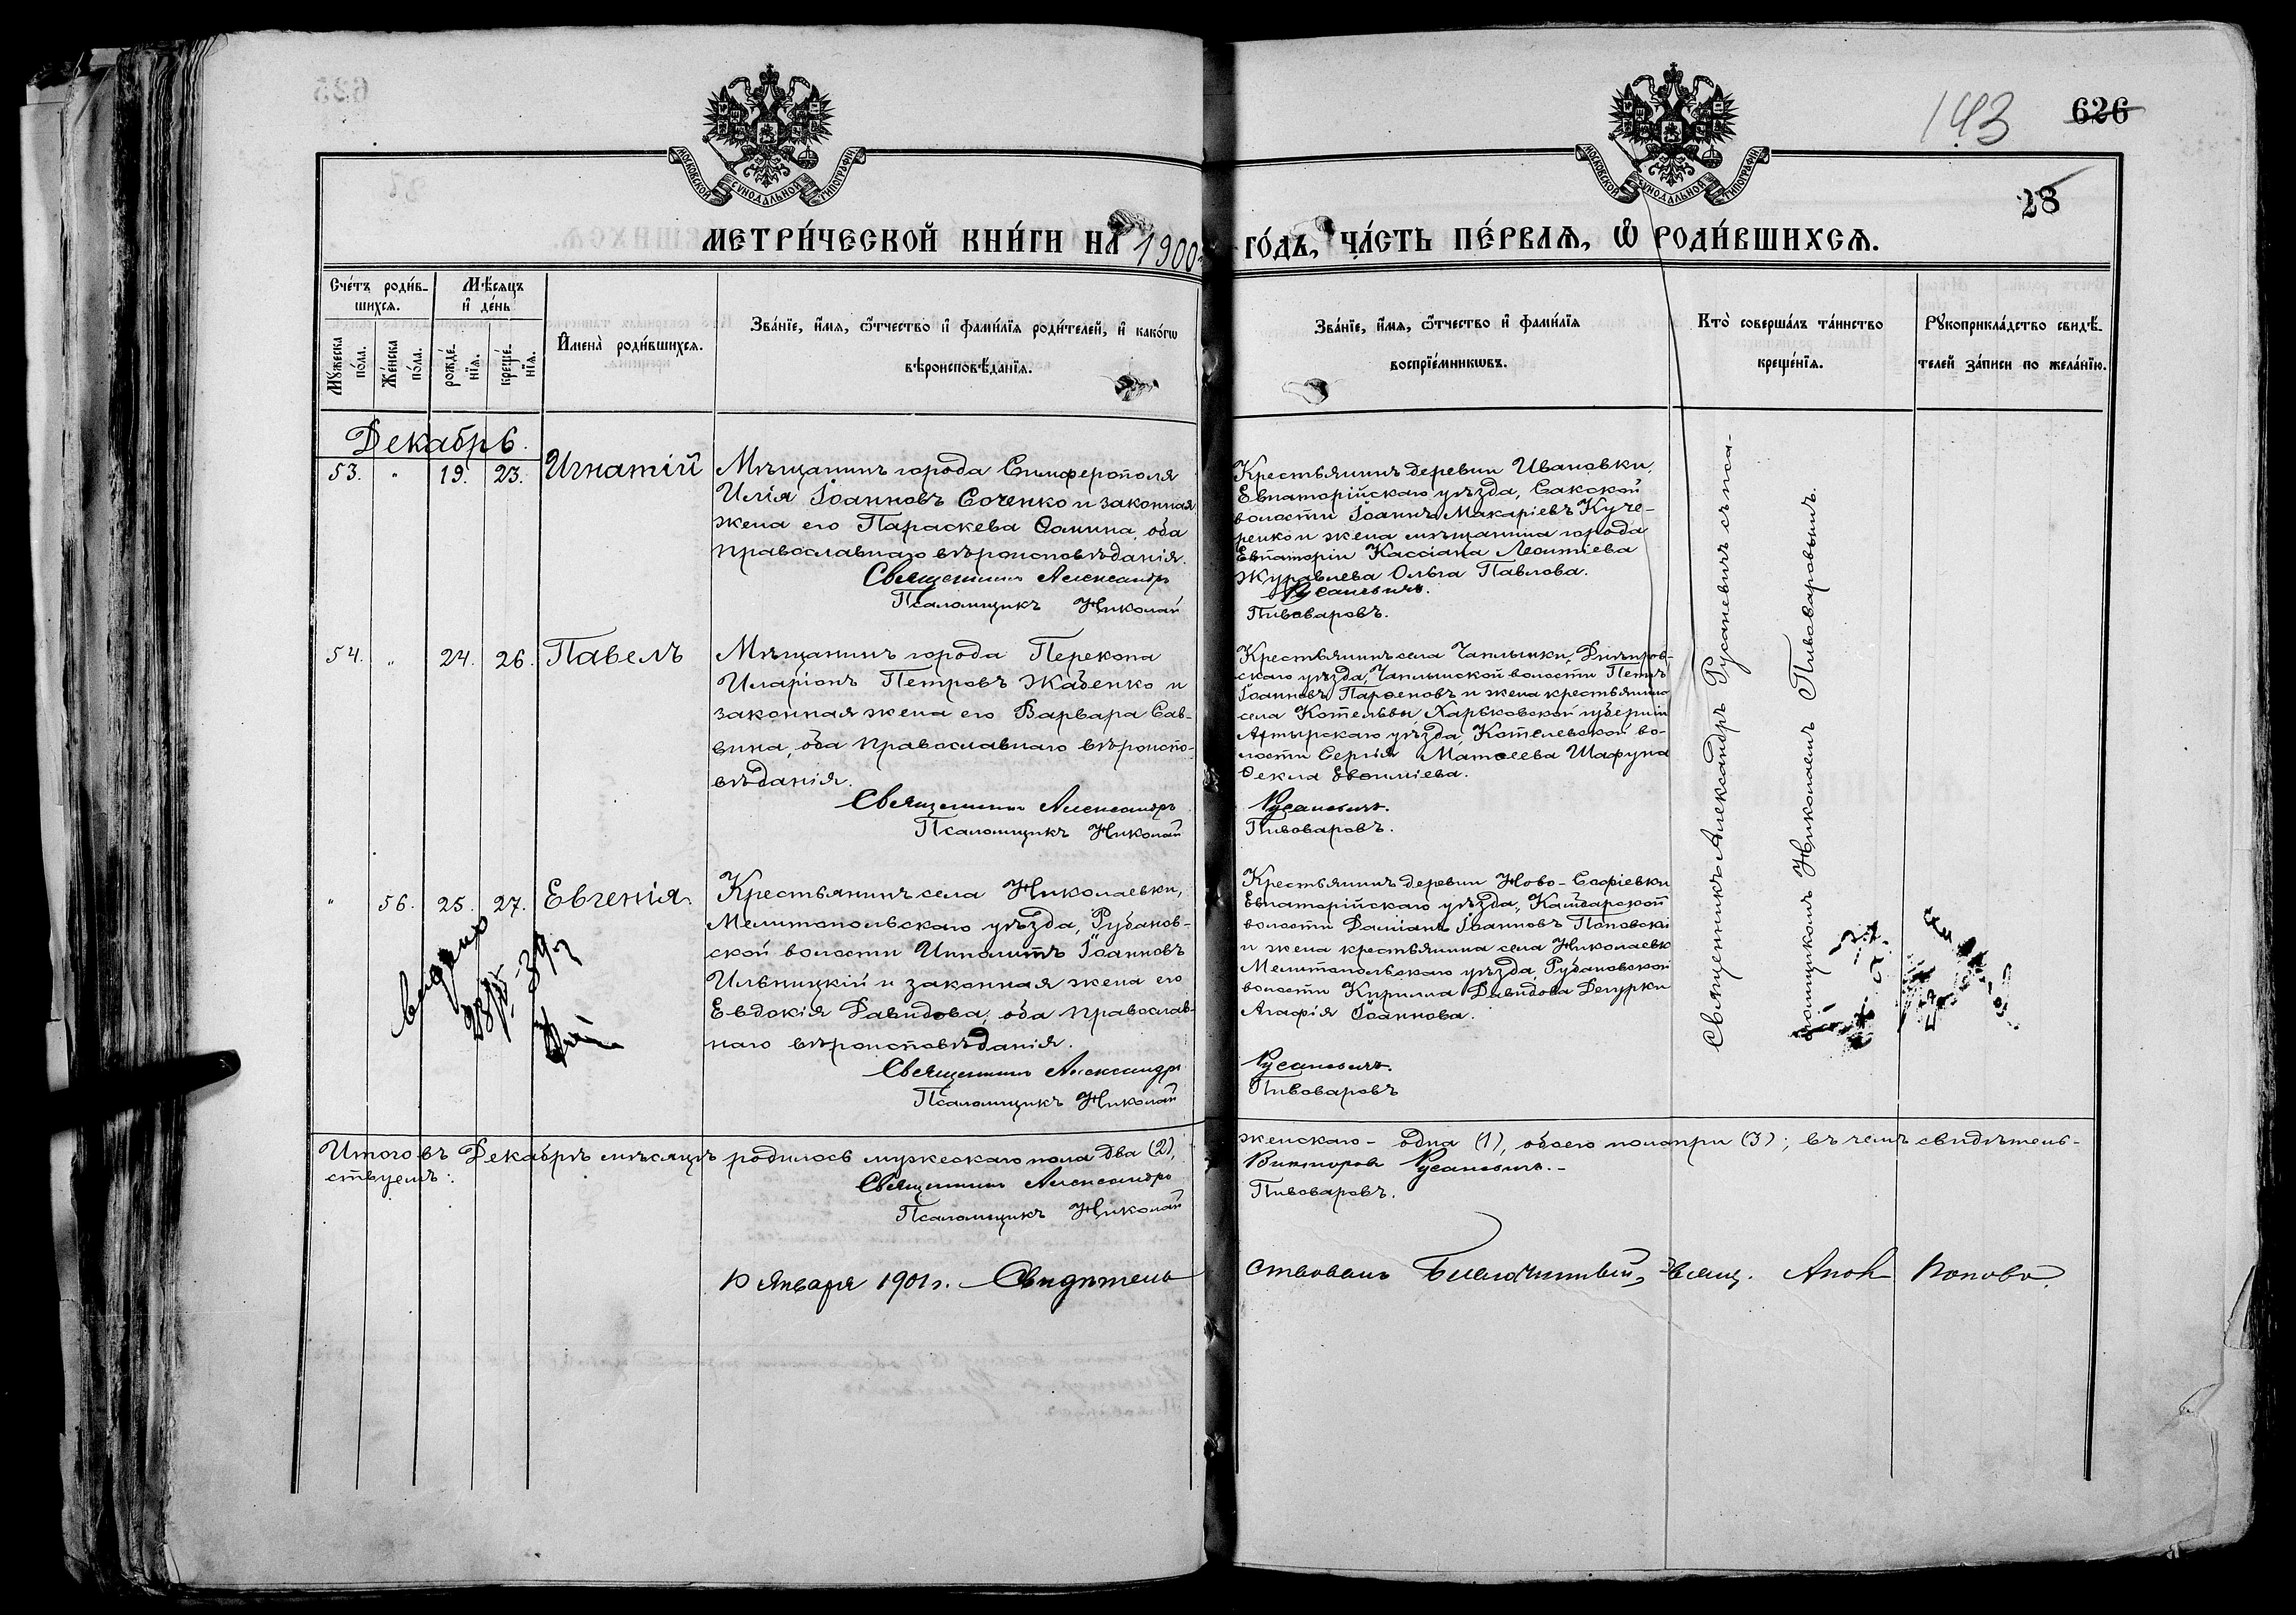 143
626
28
МОСКОВСКОЙ СѴНОДАЛЬНОЙ ТИПОГРАФІИ
МОСКОВСКОЙ СѴНОДАЛЬНОЙ ТИПОГРАФІИ
МЕТРИ́ЧЕСКОЙ КНИ́ГИ НА 1900 ГО́ДЪ, ЧА́СТЬ ПЕ́РВАЯ, Ѡ РОДИ́ВШИХСЯ.
Сче́тъ роди́в-
шихся.
Мѣ́сяцъ
и҆ де́нь
Мꙋ́жеска
по́ла.
Же́нска
по́ла.
рожде́-
нїя.
креще́-
нїя.
И҆мена̀ роди́вшихся.
Зва́нїе, и҆́мя, ѻ҆́тчество и҆ фами́лїя роди́телей, и҆ како́гѡ
вѣроисповѣ́данїя.
Зва́нїе, и҆́мя, ѻ҆́тчество и҆ фами́лїя
воспрїе́мникѡвъ.
Кто̀ соверша́лъ та́инство
креще́нїя.
Рꙋкоприкла́дство свидѣ́-
телей за́писи по жела́нїю.
Декабрь.
53. " 19. 23. Игнатій
Мѣщанинъ города Симферополя
Илія Іоанновъ Соченко и законная
жена его Параскева Ѳомина, оба
православнаго вѣроисповѣданія.
Священникъ Александръ
Псаломщикъ Николай
Крестьянинъ деревни Ивановки,
Евпаторійскаго уѣзда, Сакской
волости Іоаннъ Макаріевъ Куче-
ренко и жена мѣщанина города
Евпаторіи Кассіана Леонтіева
Журавлева Ольга Павлова.
Русаневичъ.
Пивоваровъ.
54. " 24. 26. Павелъ
Мѣщанинъ города Перекопа
Иларіонъ Петровъ Жабенко и
законная жена его Варвара Сав-
вина, оба православнаго вѣроиспо-
вѣданія.
Священникъ Александръ
Псаломщикъ Николай
Крестьянинъ села Чаплынки, Днѣпров-
скаго уѣзда, Чаплынской волости Петръ
Іоанновъ Парѳеновъ и жена крестьянина
села Котельвы, Харьковской губерніи
Ахтырскаго уѣзда, Котелевской во-
лости Сергія Матѳеева Шафуна
Ѳекла Евѳиміева.
Русаневичъ.
Пивоваровъ.
" 56. 25. 27. Евгенія
Крестьянинъ села Николаевки,
Мелитопольскаго уѣзда, Рубанов-
ской волости Ипполитъ Іоанновъ
Ильницкій и законная жена его
Евдокія Давидова, оба православ-
наго вѣроисповѣданія.
Священникъ Александръ
Псаломщикъ Николай
Крестьянинъ деревни Ново-Софіевки
Евпаторійскаго уѣзда, Камбарской
волости Даміанъ Іоанновъ Поповскі
и жена крестьянина села Николаевк
Мелитопольскаго уѣзда, Рубановской
волости Кирилла Давидова Дегурки
Агафія Іоаннова.
Русаневичъ.
Пивоваровъ
Священникъ Александръ Русаневичъ съ пса-
ломщикомъ Николаемъ Пивоваровымъ.
Итого въ Декабрѣ мѣсяцѣ родилось мужескаго пола два (2), женскаго - одна (1), обоего пола три (3); въ чемъ свидѣтель-
ствуемъ:
Священникъ Александръ Викторовъ Русаневичъ.
Псаломщикъ Николай Пивоваровъ.
10 Января 1901 г. Свидѣтель
ствовалъ Благочинный, Свящ. Попов